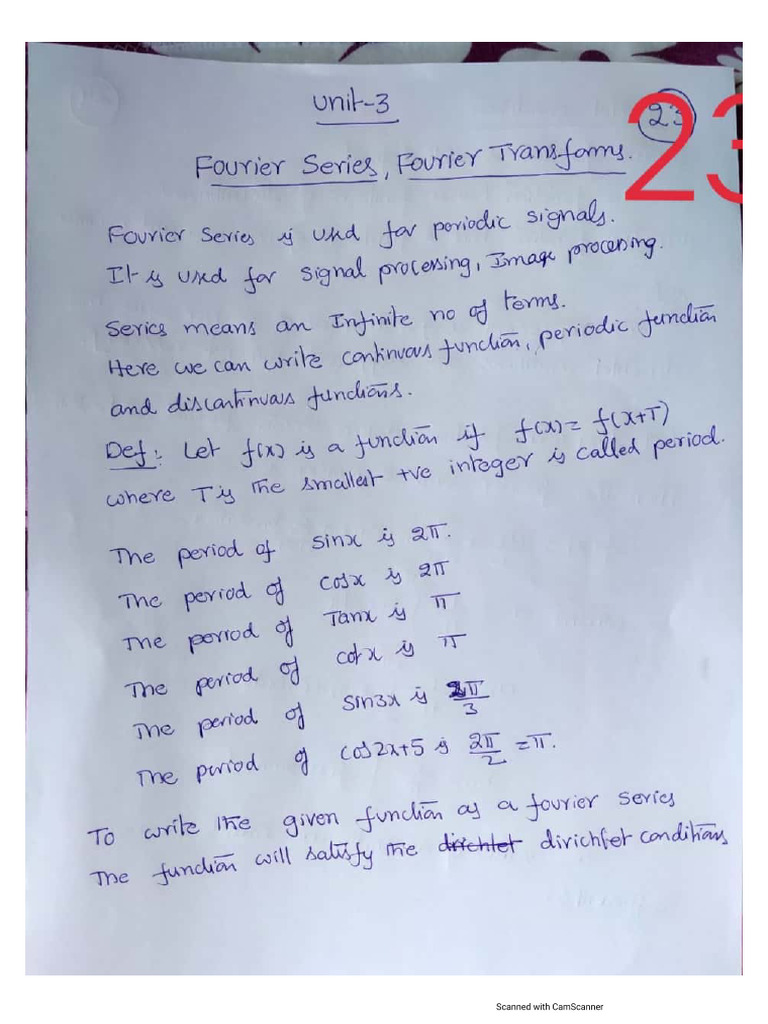 Unit-3
23
23
Fourier Series, Fourier Transforms.
Fourier Series is used for periodic signals.
It is used for signal processing, Image processing.
Series means an Infinite no of terms.
Here we can write continuous function, periodic function
and discontinuous functions.
Def: Let f(x) is a function if f(x) = f(x+T)
where T is the smallest +ve integer is called period.
The period of sinx is 2π.
The period of cosx is 2π
The period of Tanx is π
The period of cotx is π
The period of sin3x is 2π/3
The period of cos2x+5 is 2π/2 = π.
To write the given function as a fourier series
The function will satisfy the dirichlet divichfet conditions
Scanned with CamScanner